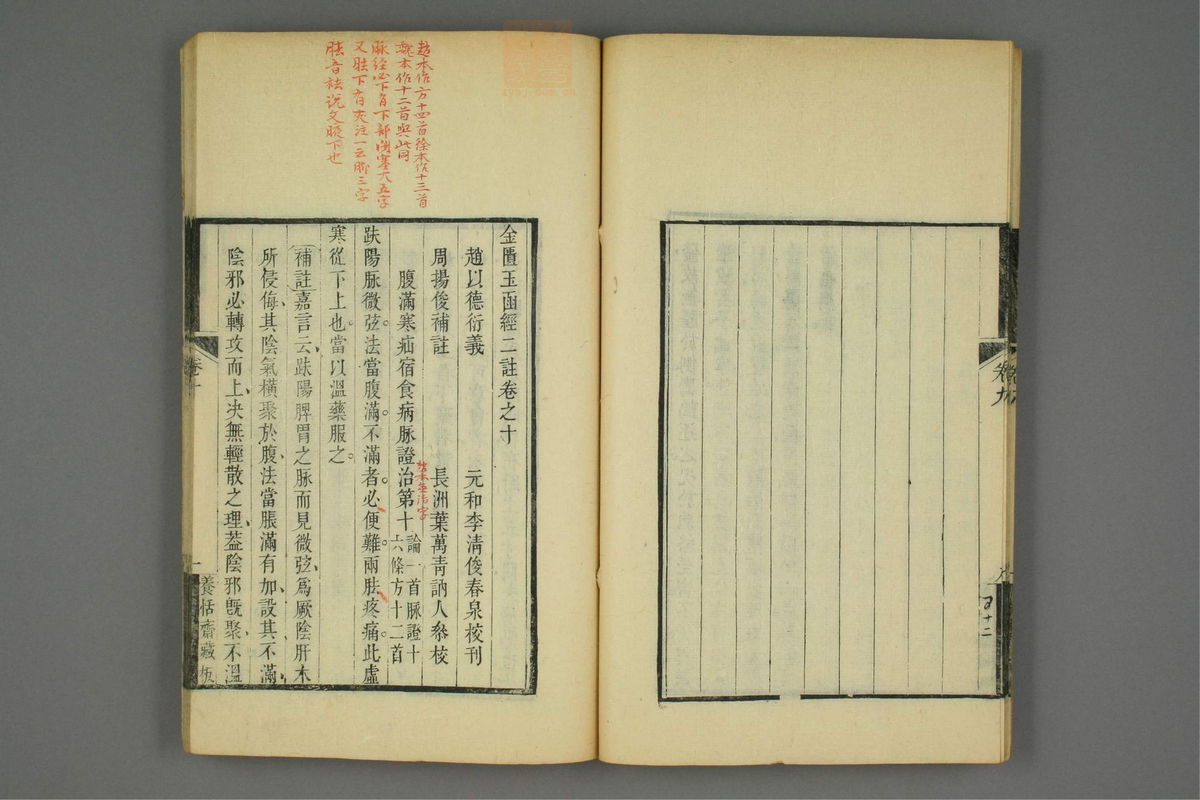 趙本作方十四首徐本作十三首
魏本作十二首與此同
脉經必下有下部閉塞大五字
又胠下有夾注一云脚三字
胠音祛說文腋下也
金匱玉函經二註卷之十
趙以德衍義
元和李清俊春泉校刊
周揚俊補註
長洲葉萬青訥人叅校
腹滿寒疝宿食病脉證治第十
論一首脉證十
六條方十二首
趙本無治字
趺陽脉微弦法當腹滿不滿者必便難兩胠疼痛此虛
寒從下上也當以溫藥服之
補註嘉言云趺陽脾胃之脉而見微弦爲厥陰肝木
所侵侮其陰氣橫聚於腹法當脹滿有加設其不滿
陰邪必轉攻而上决無輕散之理葢陰邪旣聚不溫
卷十
一
養恬齋藏板
卷九